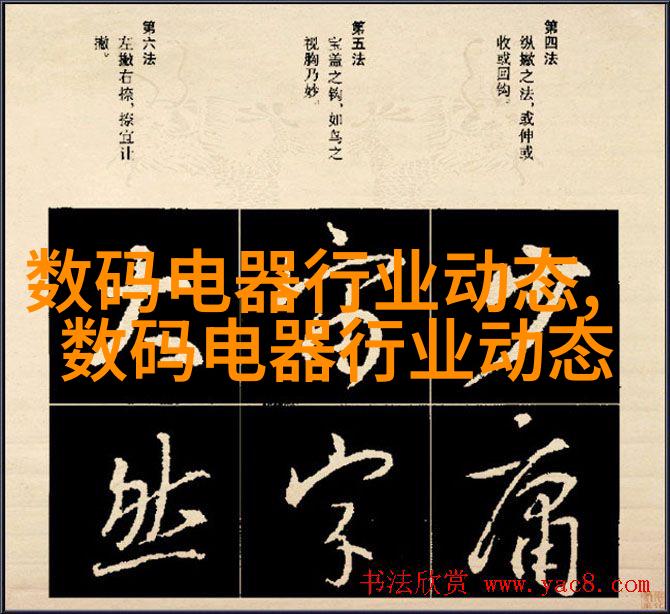 第四法
纵撇之法，或伸或
收或回钩。
第五法
宝盖之钩，如鸟之
视胸乃妙。
第六法
左撇右捺，捺宜让
撇。
数码电器行业动态,
数码电器行业动态
然 字 庸
书法欣赏 www.yac8.com